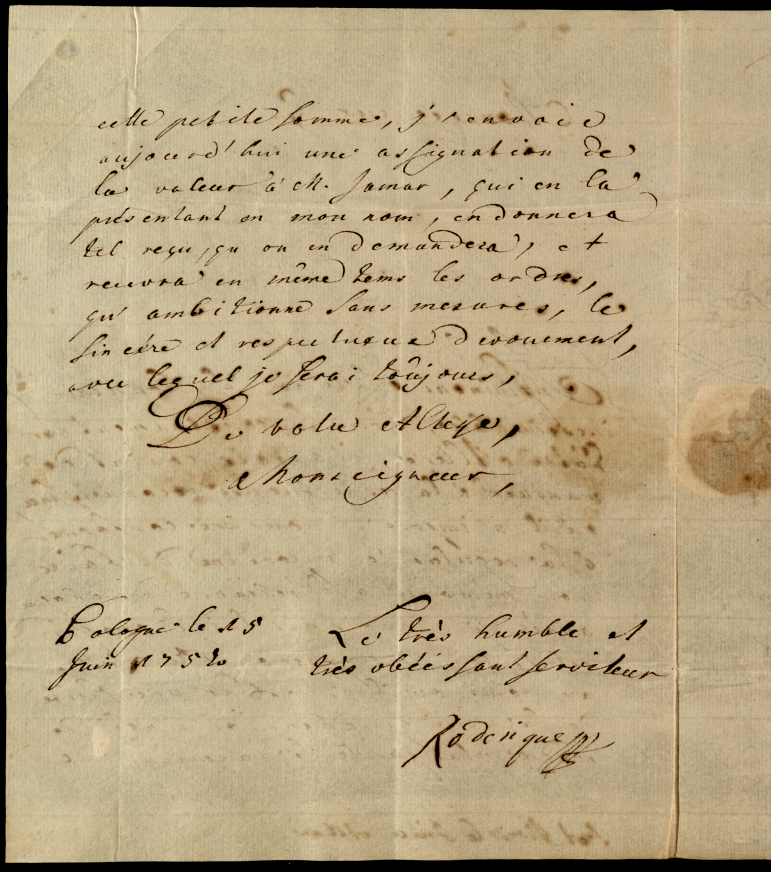 cette petite somme, j'envoie
aujourd'hui une assignation de
la valeur à M. Jamar, qui en la
présentant en mon nom, en donnera
tel reçu, qu'on en demandera, et
recevra en même tems les ordres,
qu'ambitionne sans mesures, le
sincére et respectueux devouement,
avec lequel je serai toûjours,
De votre Altesse,
Monseigneur,
Cologne le 15
Juin 1752
Le très humble et
très obéissant serviteur
Roderique